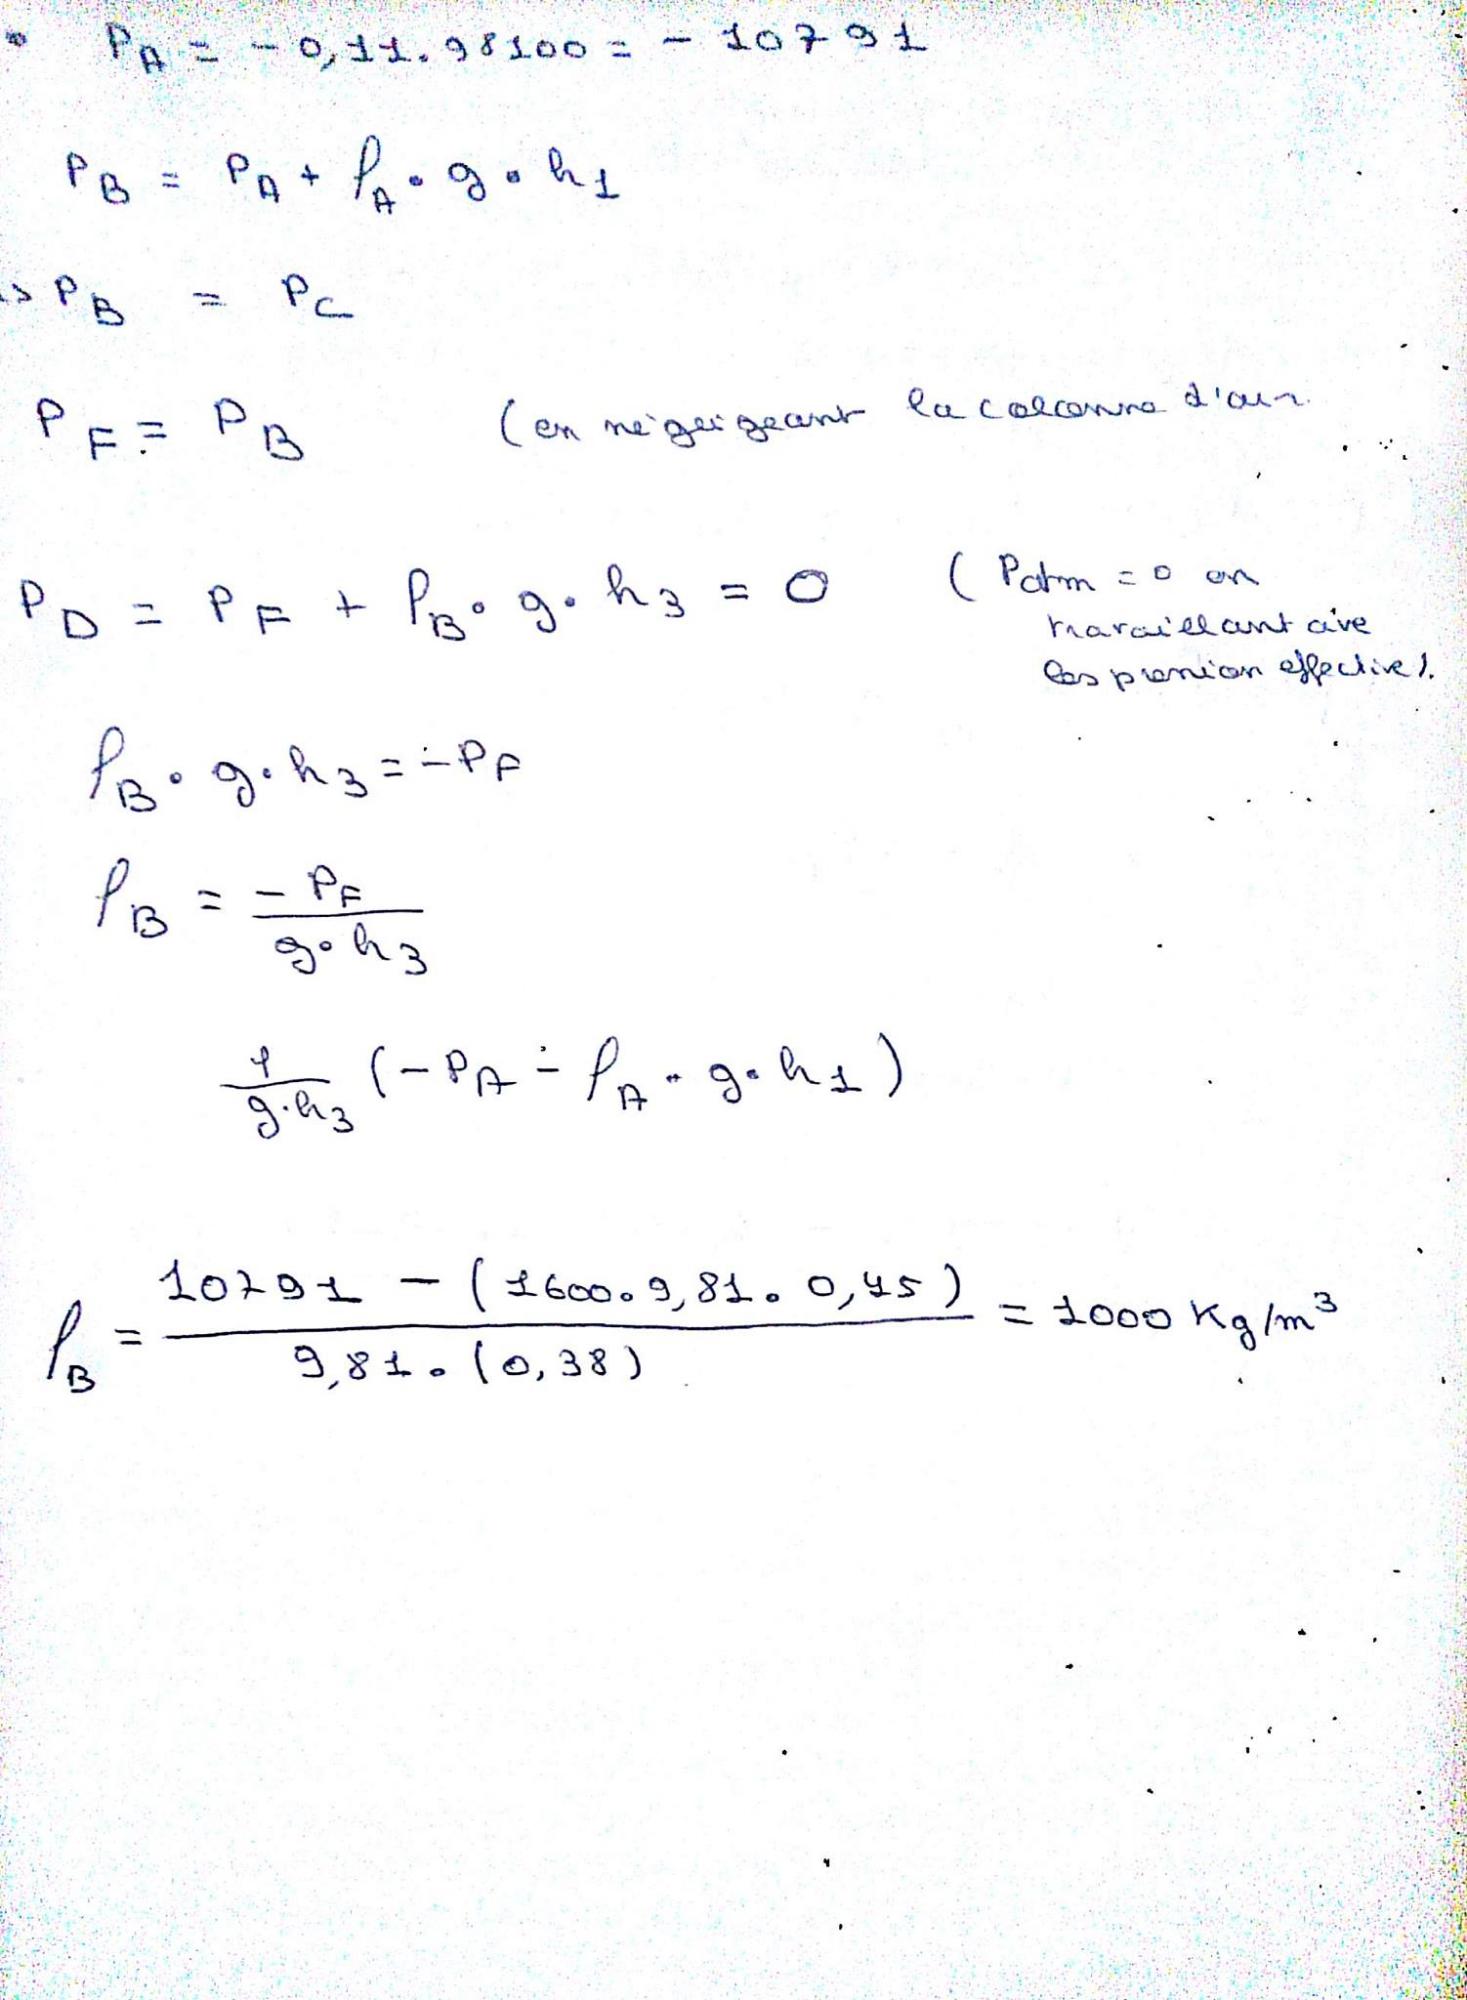 • PA = - 0,11.98100 = - 10791
PB = PA + ρA . g . h1
-> PB = PC
PF = PB (en négeigeant la colonne d'air.
PD = PF + ρB . g . h3 = 0 ( Patm = 0 en
travaillant ave
les pression effective).
ρB . g . h3 = - PF
ρB = - PF / g . h3
1 / g . h3 (- PA - ρA . g . h1)
ρB = 10791 - (1600 . 9,81 . 0,45) / 9,81 . (0,38) = 1000 Kg/m³